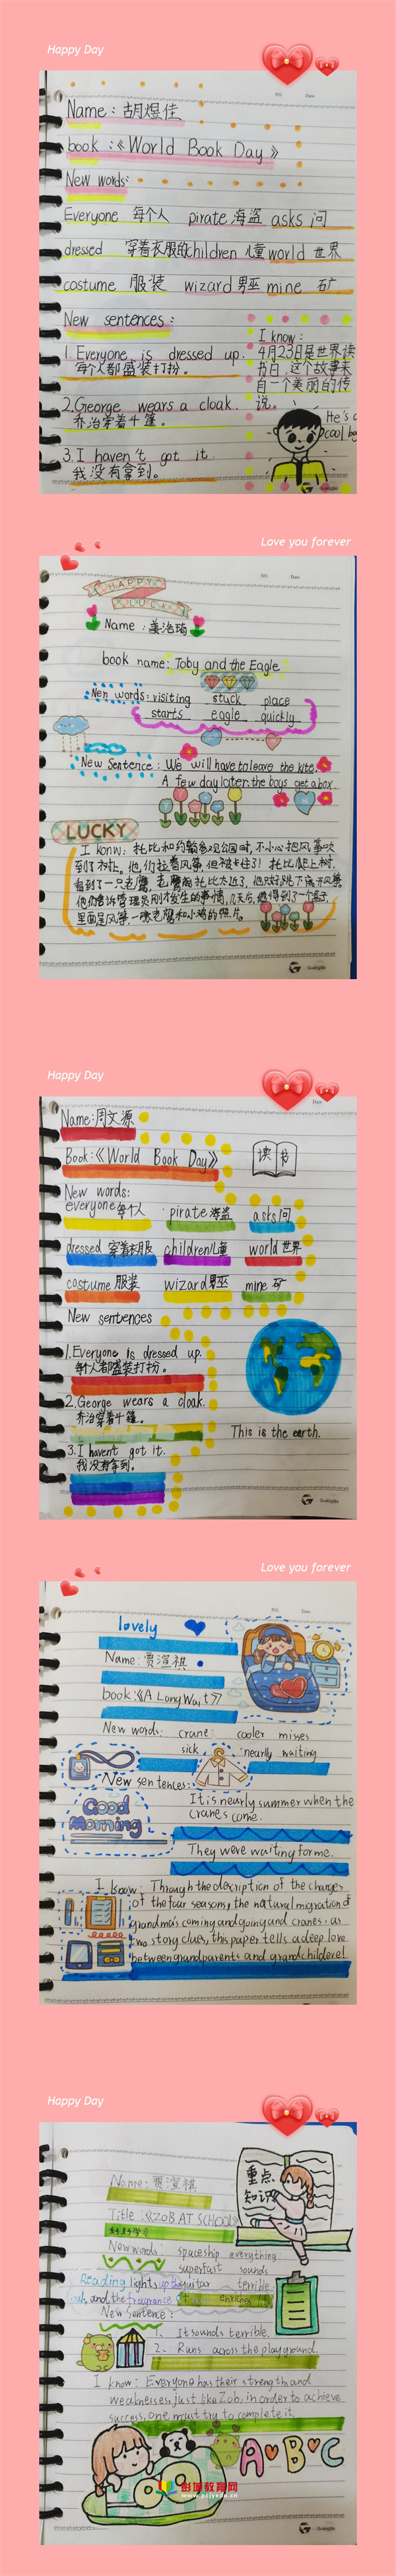 Happy Day
No.
Date
Name: 胡煜佳
book:《World Book Day》
New words:
Everyone 每个人 pirate 海盗 asks 问
dressed 穿着衣服的 children 儿童 world 世界
costume 服装 wizard 男巫 mine 矿
New sentences:
1. Everyone is dressed up.
每个人都盛装打扮。
2. George wears a cloak.
乔治穿着斗篷。
3. I haven't got it.
我没有拿到。
I know:
4月23日是世界读
书日,这个故事来
自一个美丽的传
说。
He's a
cool bo
Love you forever
No.
Date
HAPPY
LUCKY
Name:姜浩琦
book name: Toby and the Eagle
New words: visiting stuck place
starts eagle quickly
New Sentence: We will have to leave the kite.
A few day later the boys get a box.
LUCKY
I konw: 托比和约翰参观公园时,不小心把风筝吹
到了树在。他们拉着风筝,但被卡住了!托比爬上树,
看到了一只老鹰,老鹰离托比太近了,他只好跳下离开风筝。
他们告诉管理员刚才发生的事情,几天后,他得到了一个盒子,
里面是风筝,一张老鹰和小鸡的照片。
GuangBo
Happy Day
Date
Name:周文源
Book:《World Book Day》
读书
New words:
everyone 每个人 pirate 海盗 asks 问
dressed 穿着衣服 children 儿童 world 世界
costume 服装 wizard 男巫 mine 矿
New sentences
1. Everyone is dressed up.
每个人都盛装打扮。
2. George wears a cloak.
乔治穿着斗篷。
This is the earth.
3. I haven't got it.
我没有拿到。
GuangBo
Love you forever
No.
Date
lovely
Name:贾渲祺
book:《A Long Wait》
New words: crane cooler misses
sick nearly waiting
New sentences:
Good
Morning
It is nearly summer when the
cranes come.
They were waiting for me.
I know: Through the decription of the changes
of the four seasons, the natural migration of
grandma's coming and going and cranes as
the story clues, this paper tells a deep love
between grandparents and grandchildere!
Happy Day
Name:贾渲祺
Title:《ZOB AT SCHOOL》
好好学习
重点
知识
New words: spaceship everything
superfast sounds
Reading lights up the guitar terrible
and the fragrance enriches
New sentence:
1. It sounds terrible.
2. Runs across the playground.
I know: Everyone has their strength and
weaknesses, just like Zob, in order to achieve
success, one must try to complete it.
A B C
彭城教育网
www.pcjyedu.cn
GuangBo